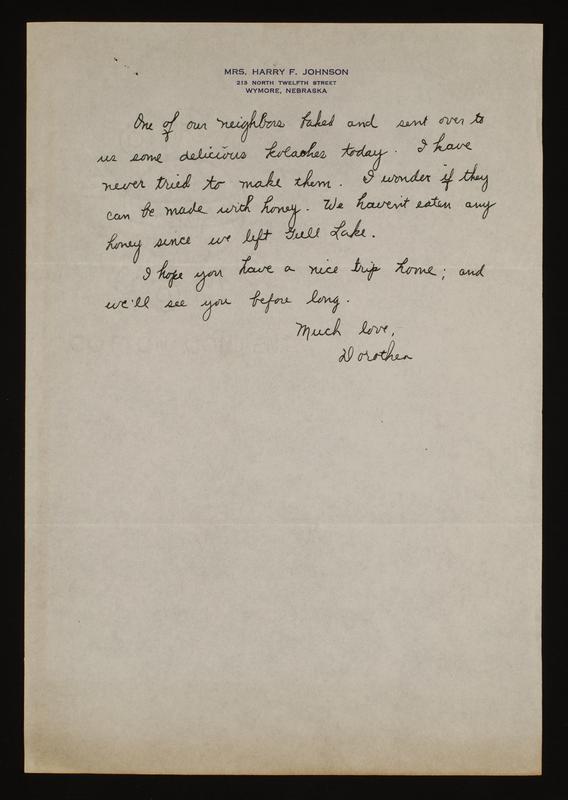 MRS. HARRY F. JOHNSON
213 NORTH TWELFTH STREET
WYMORE, NEBRASKA
One of our neighbors baked and sent over to
us some delicious kolaches today. I have
never tried to make them. I wonder if they
can be made with honey. We haven't eaten any
honey since we left Gull Lake.
I hope you have a nice trip home; and
we'll see you before long.
Much love,
Dorothea